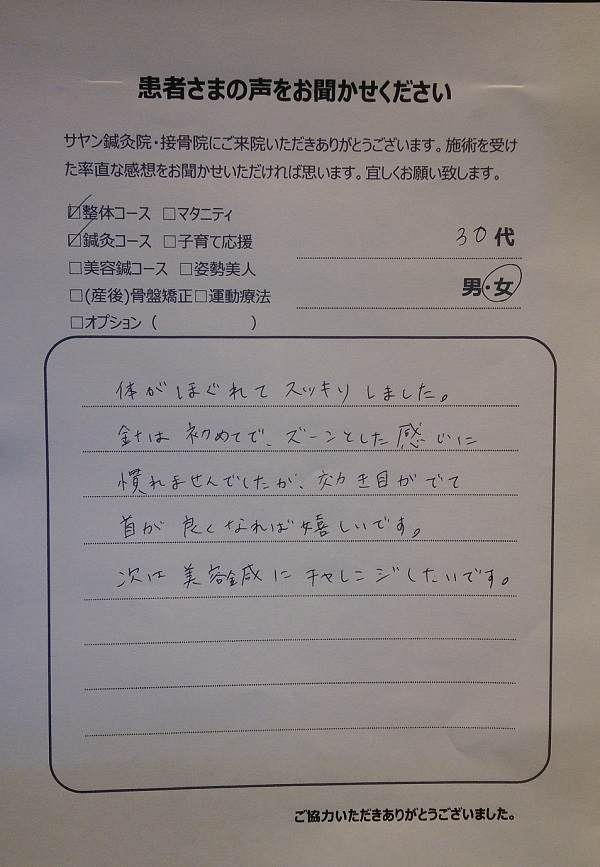 患者さまの声をお聞かせください
サヤン鍼灸院・接骨院にご来院いただきありがとうございます。施術を受け
た率直な感想をお聞かせいただければ思います。宜しくお願い致します。
☑整体コース □マタニティ
☑鍼灸コース □子育て応援
□美容鍼コース □姿勢美人
□(産後)骨盤矯正□運動療法
□オプション( )
30代
男・女
体がほぐれてスッキリしました。
針は初めてで、ズーンとした感じに
慣れませんでしたが、効き目がでて
首が良くなれば嬉しいです。
次は美容鍼にチャレンジしたいです。
ご協力いただきありがとうございました。